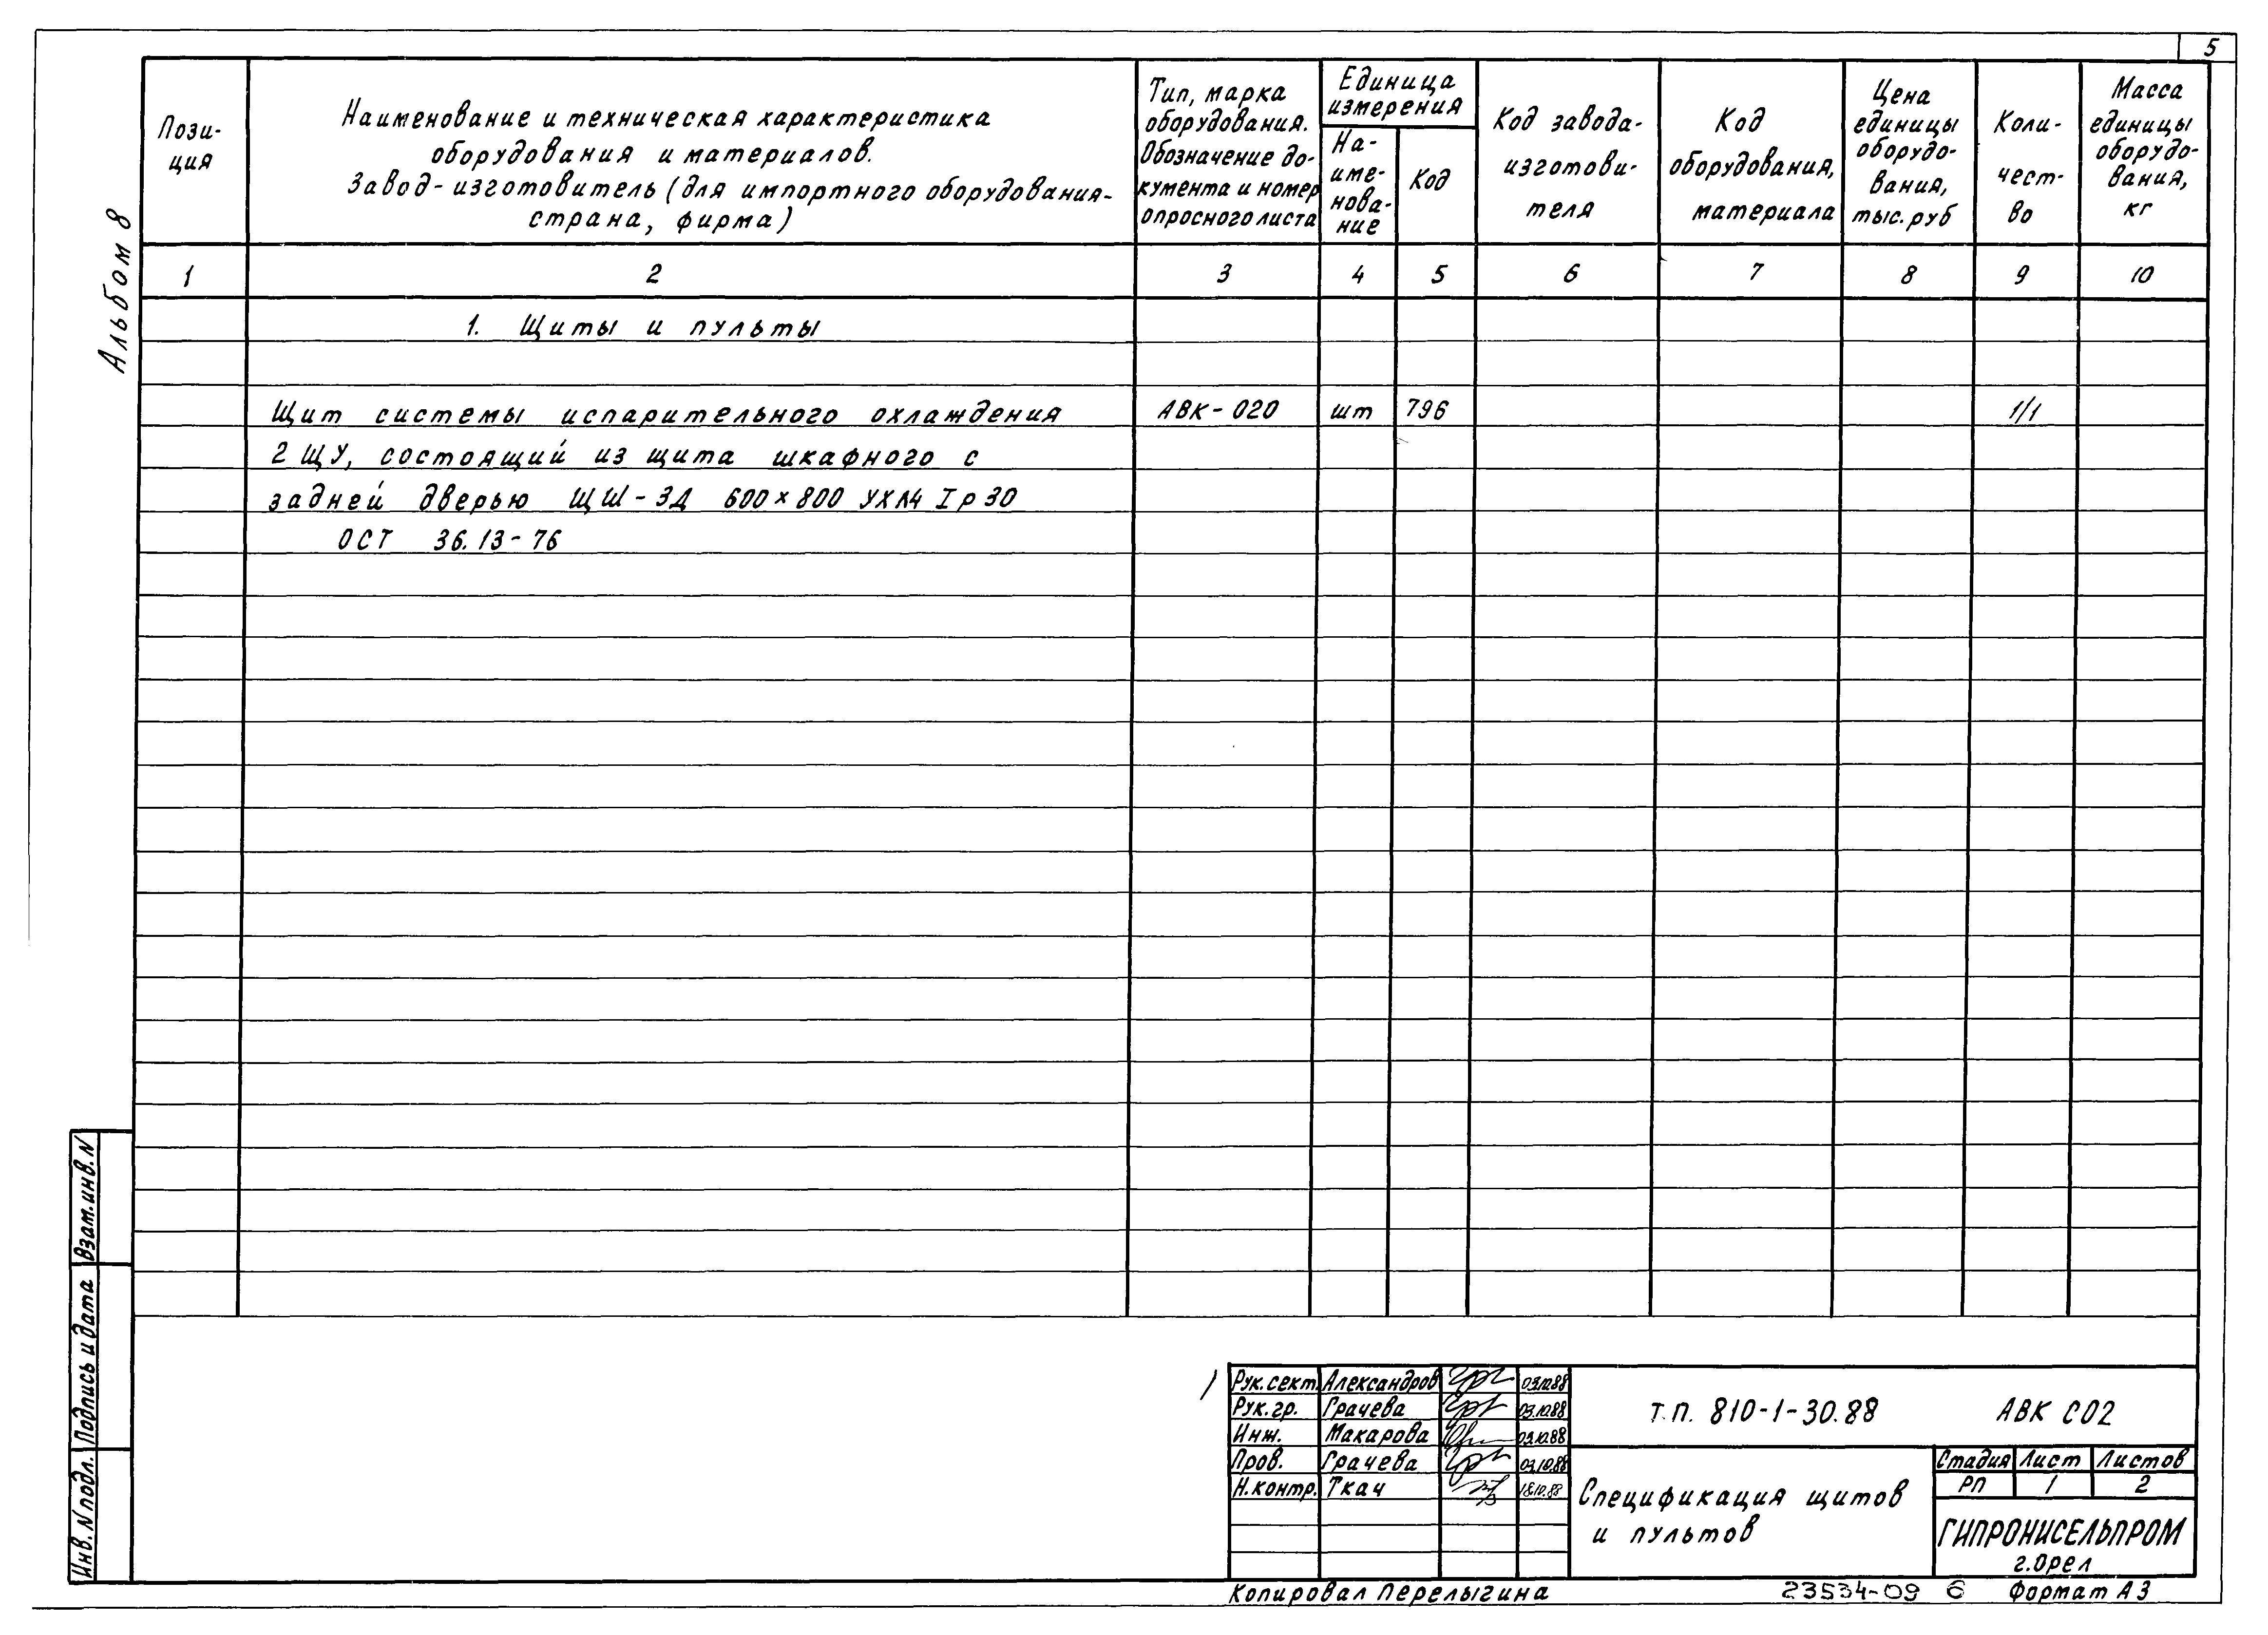 5
Альбом 8
Пози-
ция
Наименование и техническая характеристика
оборудования и материалов.
Завод-изготовитель (для импортного оборудования-
страна, фирма)
Тип, марка
оборудования.
Обозначение до-
кумента и номер
опросного листа
Единица
измерения
На-
име-
нова-
ние
Код
Код завода-
изготови-
теля
Код
оборудования,
материала
Цена
единицы
оборудо-
вания,
тыс. руб
Коли-
чест-
во
Масса
единицы
оборудо-
вания,
кг
1 2 3 4 5 6 7 8 9 10
1. Щиты и пульты
Щит системы испарительного охлаждения АВК-020 шт 796 1/1
2 ЩУ, состоящий из щита шкафного с
задней дверью ЩШ-ЗД 600×800 УХЛ4 Iр30
ОСТ 36.13-76
Взам. инв. N
Подпись и дата
Инв. N подл.
Рук. сект. Александров 03.10.88
Рук. гр. Грачева 03.10.88
Инж. Макарова 03.10.88
Пров. Грачева 03.10.88
Н. контр. Ткач 18.10.88
т.п. 810-1-30.88 АВК СО2
Спецификация щитов
и пультов
Стадия Лист Листов
РП 1 2
ГИПРОНИСЕЛЬПРОМ
г. Орел
Копировал Перелыгина 23534-09 6 Формат А3